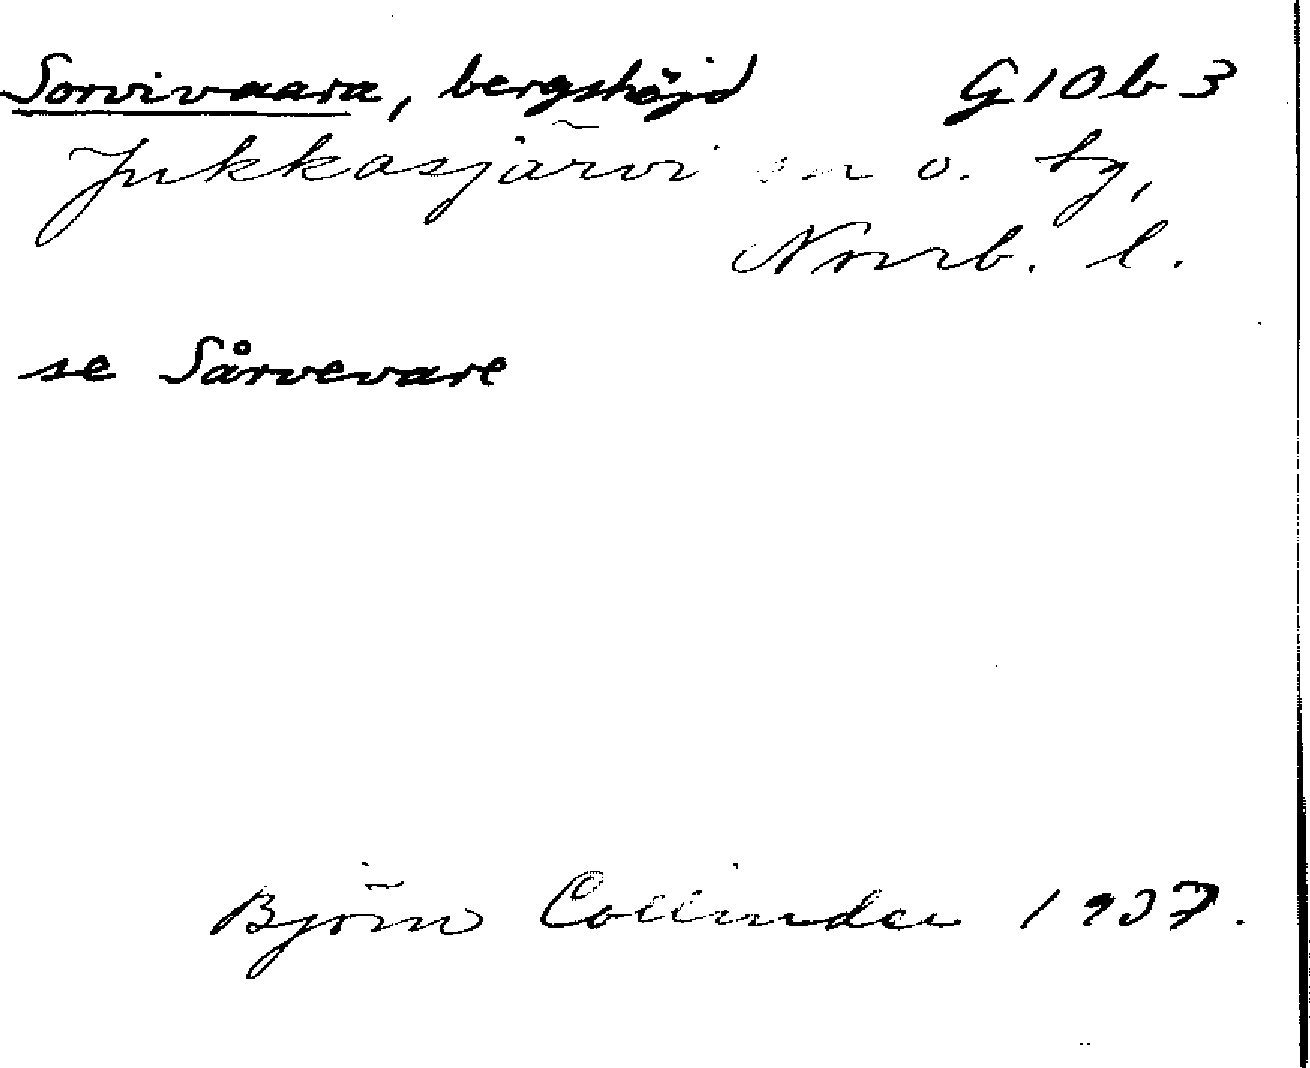 Sorvivaara, bergshöjd G10b3
Jukkasjärvi sn o. tg,
Norrb. l.
se Sårvevare
Björn Collinder 1937.